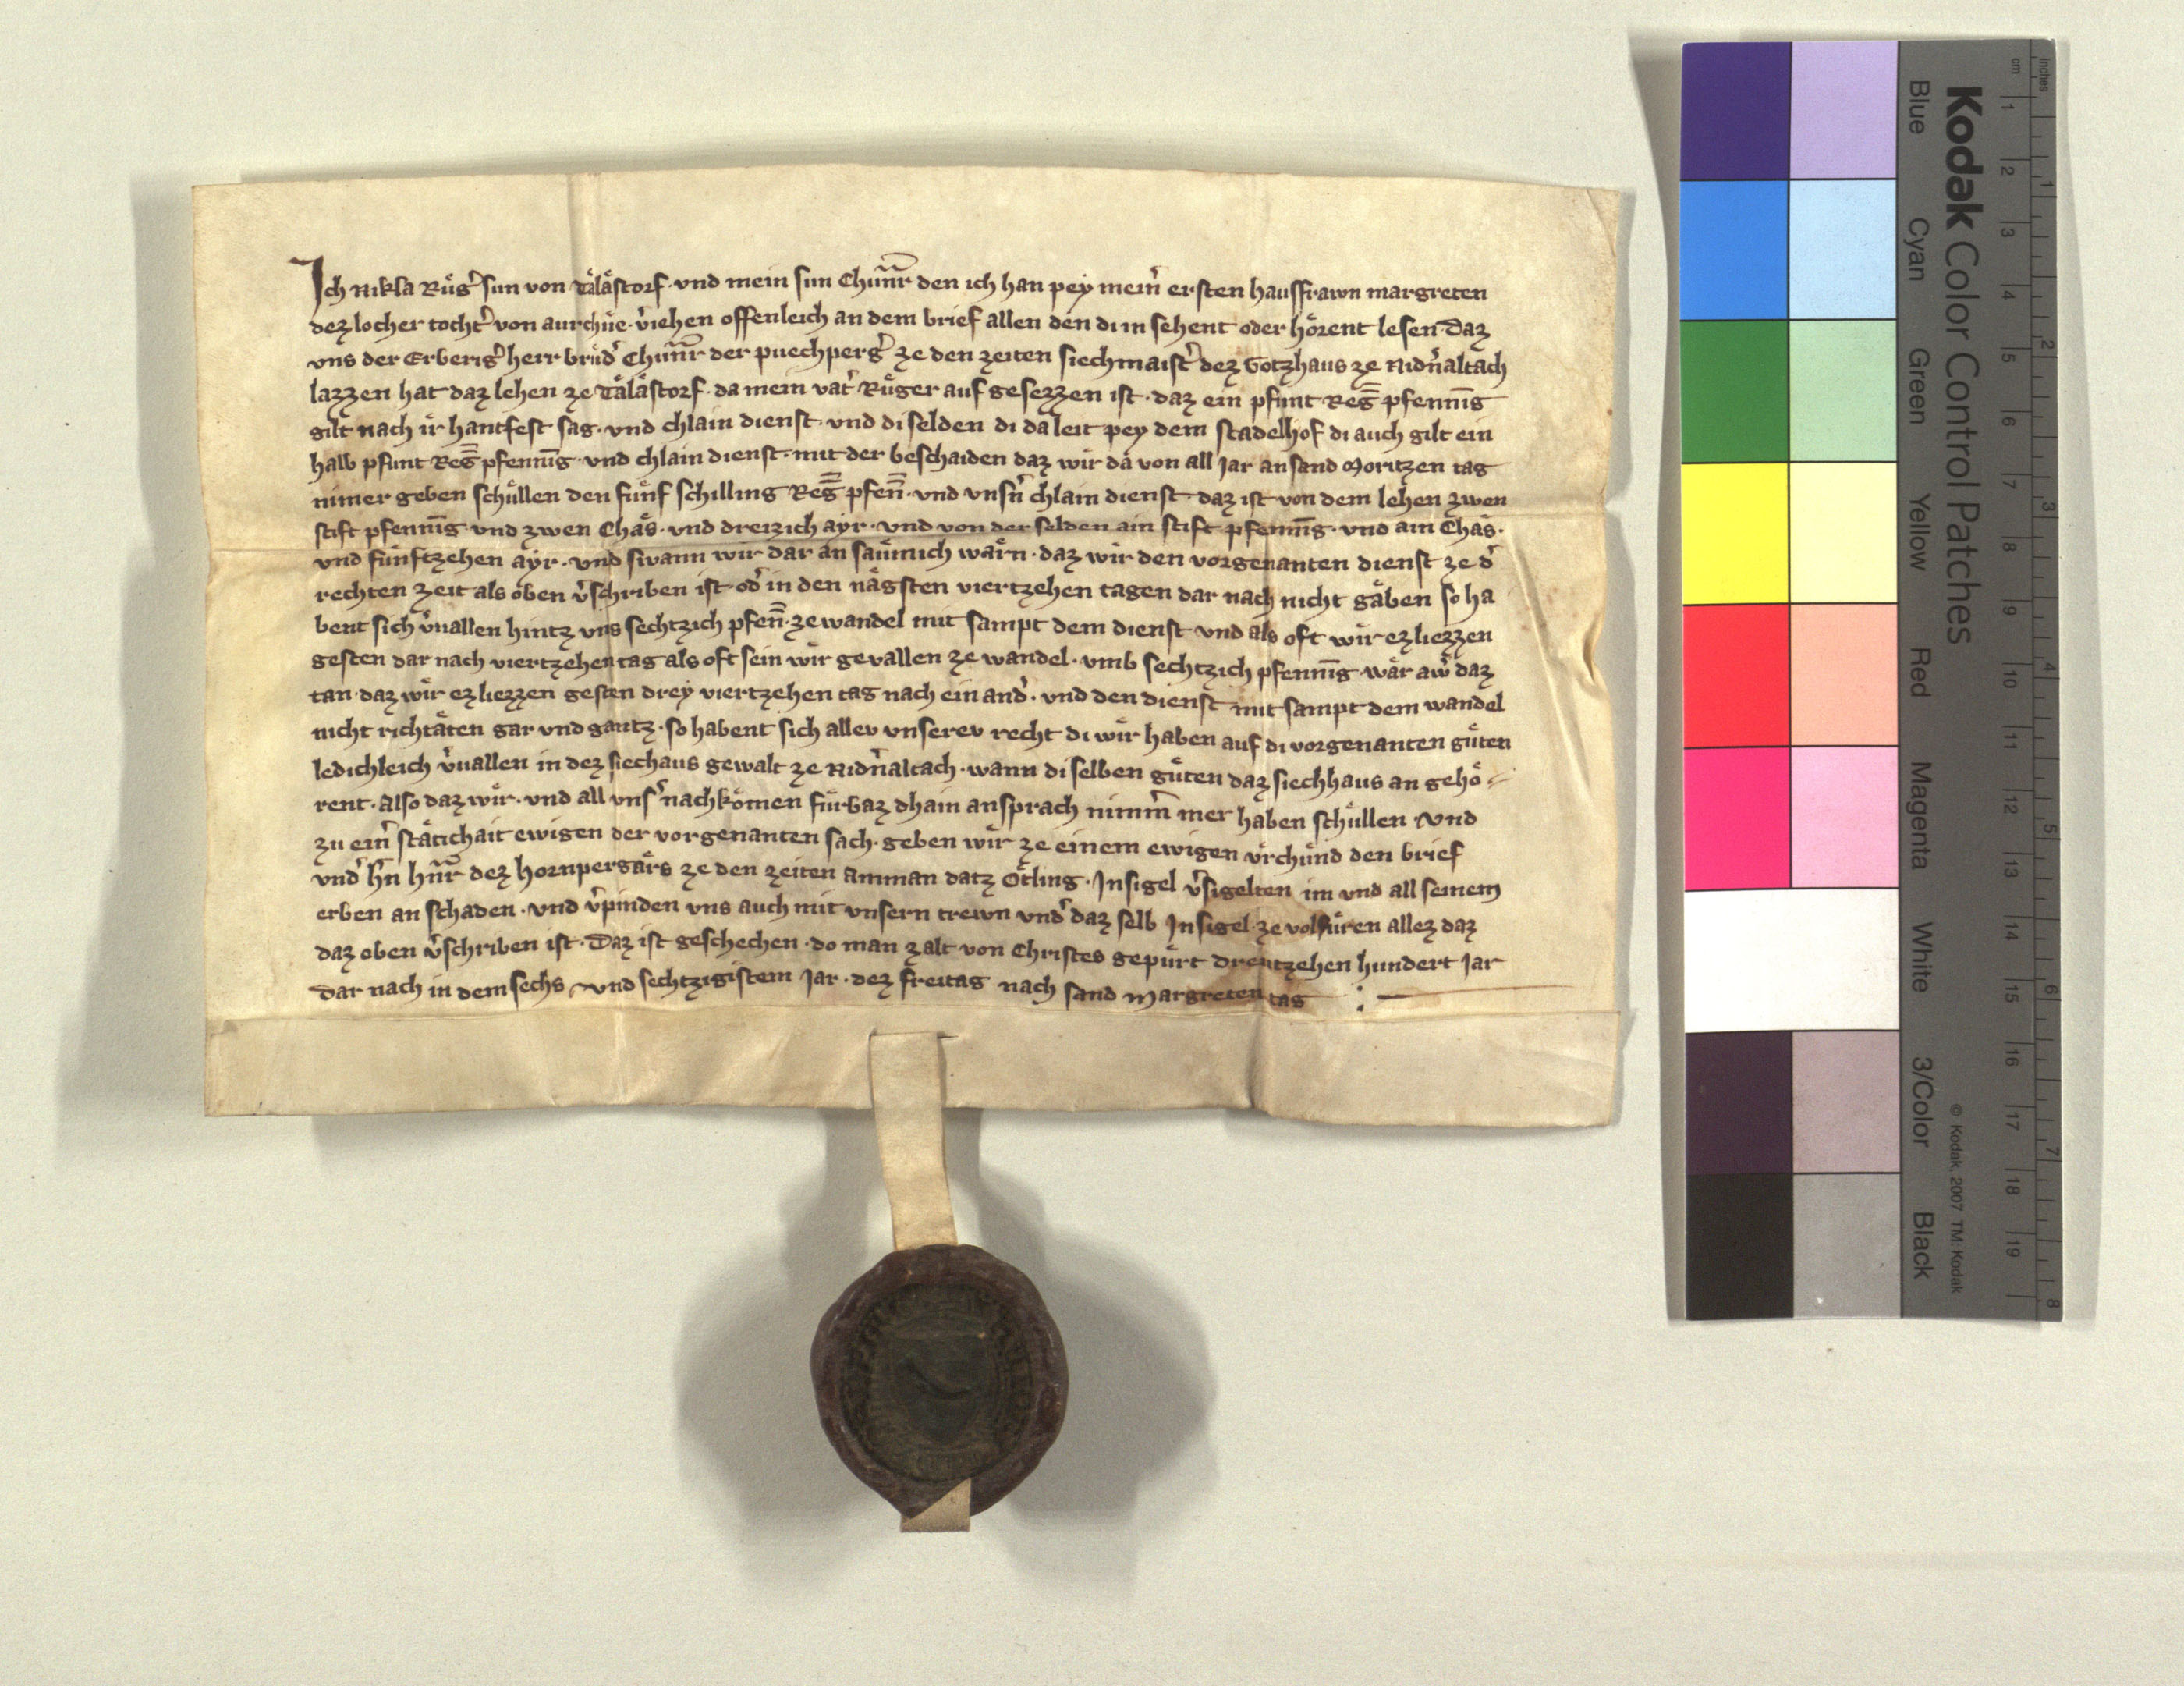 Ich Nikla Rug̉ sun von Tälästorf · und mein sun Chunr̄ den ich han pey mein̉ ersten hausfrawn margreten
dez locher tocht̉ von aurchue · v̉iehen offenleich an dem brief allen den di in sehent oder hörent lesen · Daz
uns der Erberig̉ herr brud̉ Chunr̄ der puechperg̉ ze den zeiten siechmaist̉ dez Gotzhaus ze Nidn̉altach
lazzen hat daz lehen ze Tälästorf · da mein vat̉ Ruger auf gesezzen ist · daz ein pfunt Reḡ pfenni̅g
gilt nach ir hantfest sag · und chlain dienst · und di selden di da leit pey dem stadelhof di auch gilt ein
halb pfunt Reḡ pfenni̅g · und chlain dienst · mit der beschaiden daz wir da von all Jar an sand Moritzen tag
nimer geben schüllen den fünf schilling Reḡ pfen̄ · und unsn̉ chlain dienst daz ist von dem lehen zwen
stift pfenni̅g und zwen Chäs · und dreizich ayr · und von der selden ain stift pfenni̅g · und ain Chäs ·
und funftzehen ayr · und swann wir dar an säumich wärn · daz wir den vorgenanten dienst ze d̉
rechten zeit als oben v̉schriben ist · od̉ in den nägsten viertzehen tagen dar nach nicht gäben so ha
bent sich v̉vallen hintz uns sechtzich pfen̄ · ze wandel mit sampt dem dienst · und als oft wir ez liezzen
gesten dar nach viertzehen tag als oft sein wir gevallen ze wandel · umb sechtzich pfenni̅g · wär aw̉ daz
tan · daz wir ez liezzen gesten drey viertzehen tag nach ein and̉ · und den dienst mit sampt dem wandel
nicht richtäten gar und gantz · so habent sich allev unserev recht di wir haben auf di vorgenanten güten
ledichleich v̉vallen in dez siechaus gewalt ze Nidn̉altach · wann di selben güten daz siechhaus an gehö-
rent · Also daz wir · und all uns̉ nachkömen fürbaz dhain ansprach nimm̉ mer haben schüllen · Und
zu ein̉ stätichait ewigen der vorgenanten sach · geben wir ze einem ewigen urchund den brief
und̉ hn̄ hnr̄ dez hornpergärs ze den zeiten amman datz Ötling · Insigel v̉sigelten im und all seinem
erben an schaden · und v̉pinden uns auch mit unsern trewn und̉ daz selb Insigel ze volfüren allez daz
daz oben v̉schriben ist · Daz ist geschechen · do man zalt von Christes gepürt dreutzehen hundert Jar
Dar nach in dem sechs und sechtzigistem Jar · dez freitag nach sand Margreten tag
Kodak Color Control Patches
Blue Cyan Green Yellow Red Magenta White 3/Color Black
© Kodak, 2007 TM: Kodak
cm 1 2 3 4 5 6 7 8 9 10 11 12 13 14 15 16 17 18 19
inches 1 2 3 4 5 6 7 8